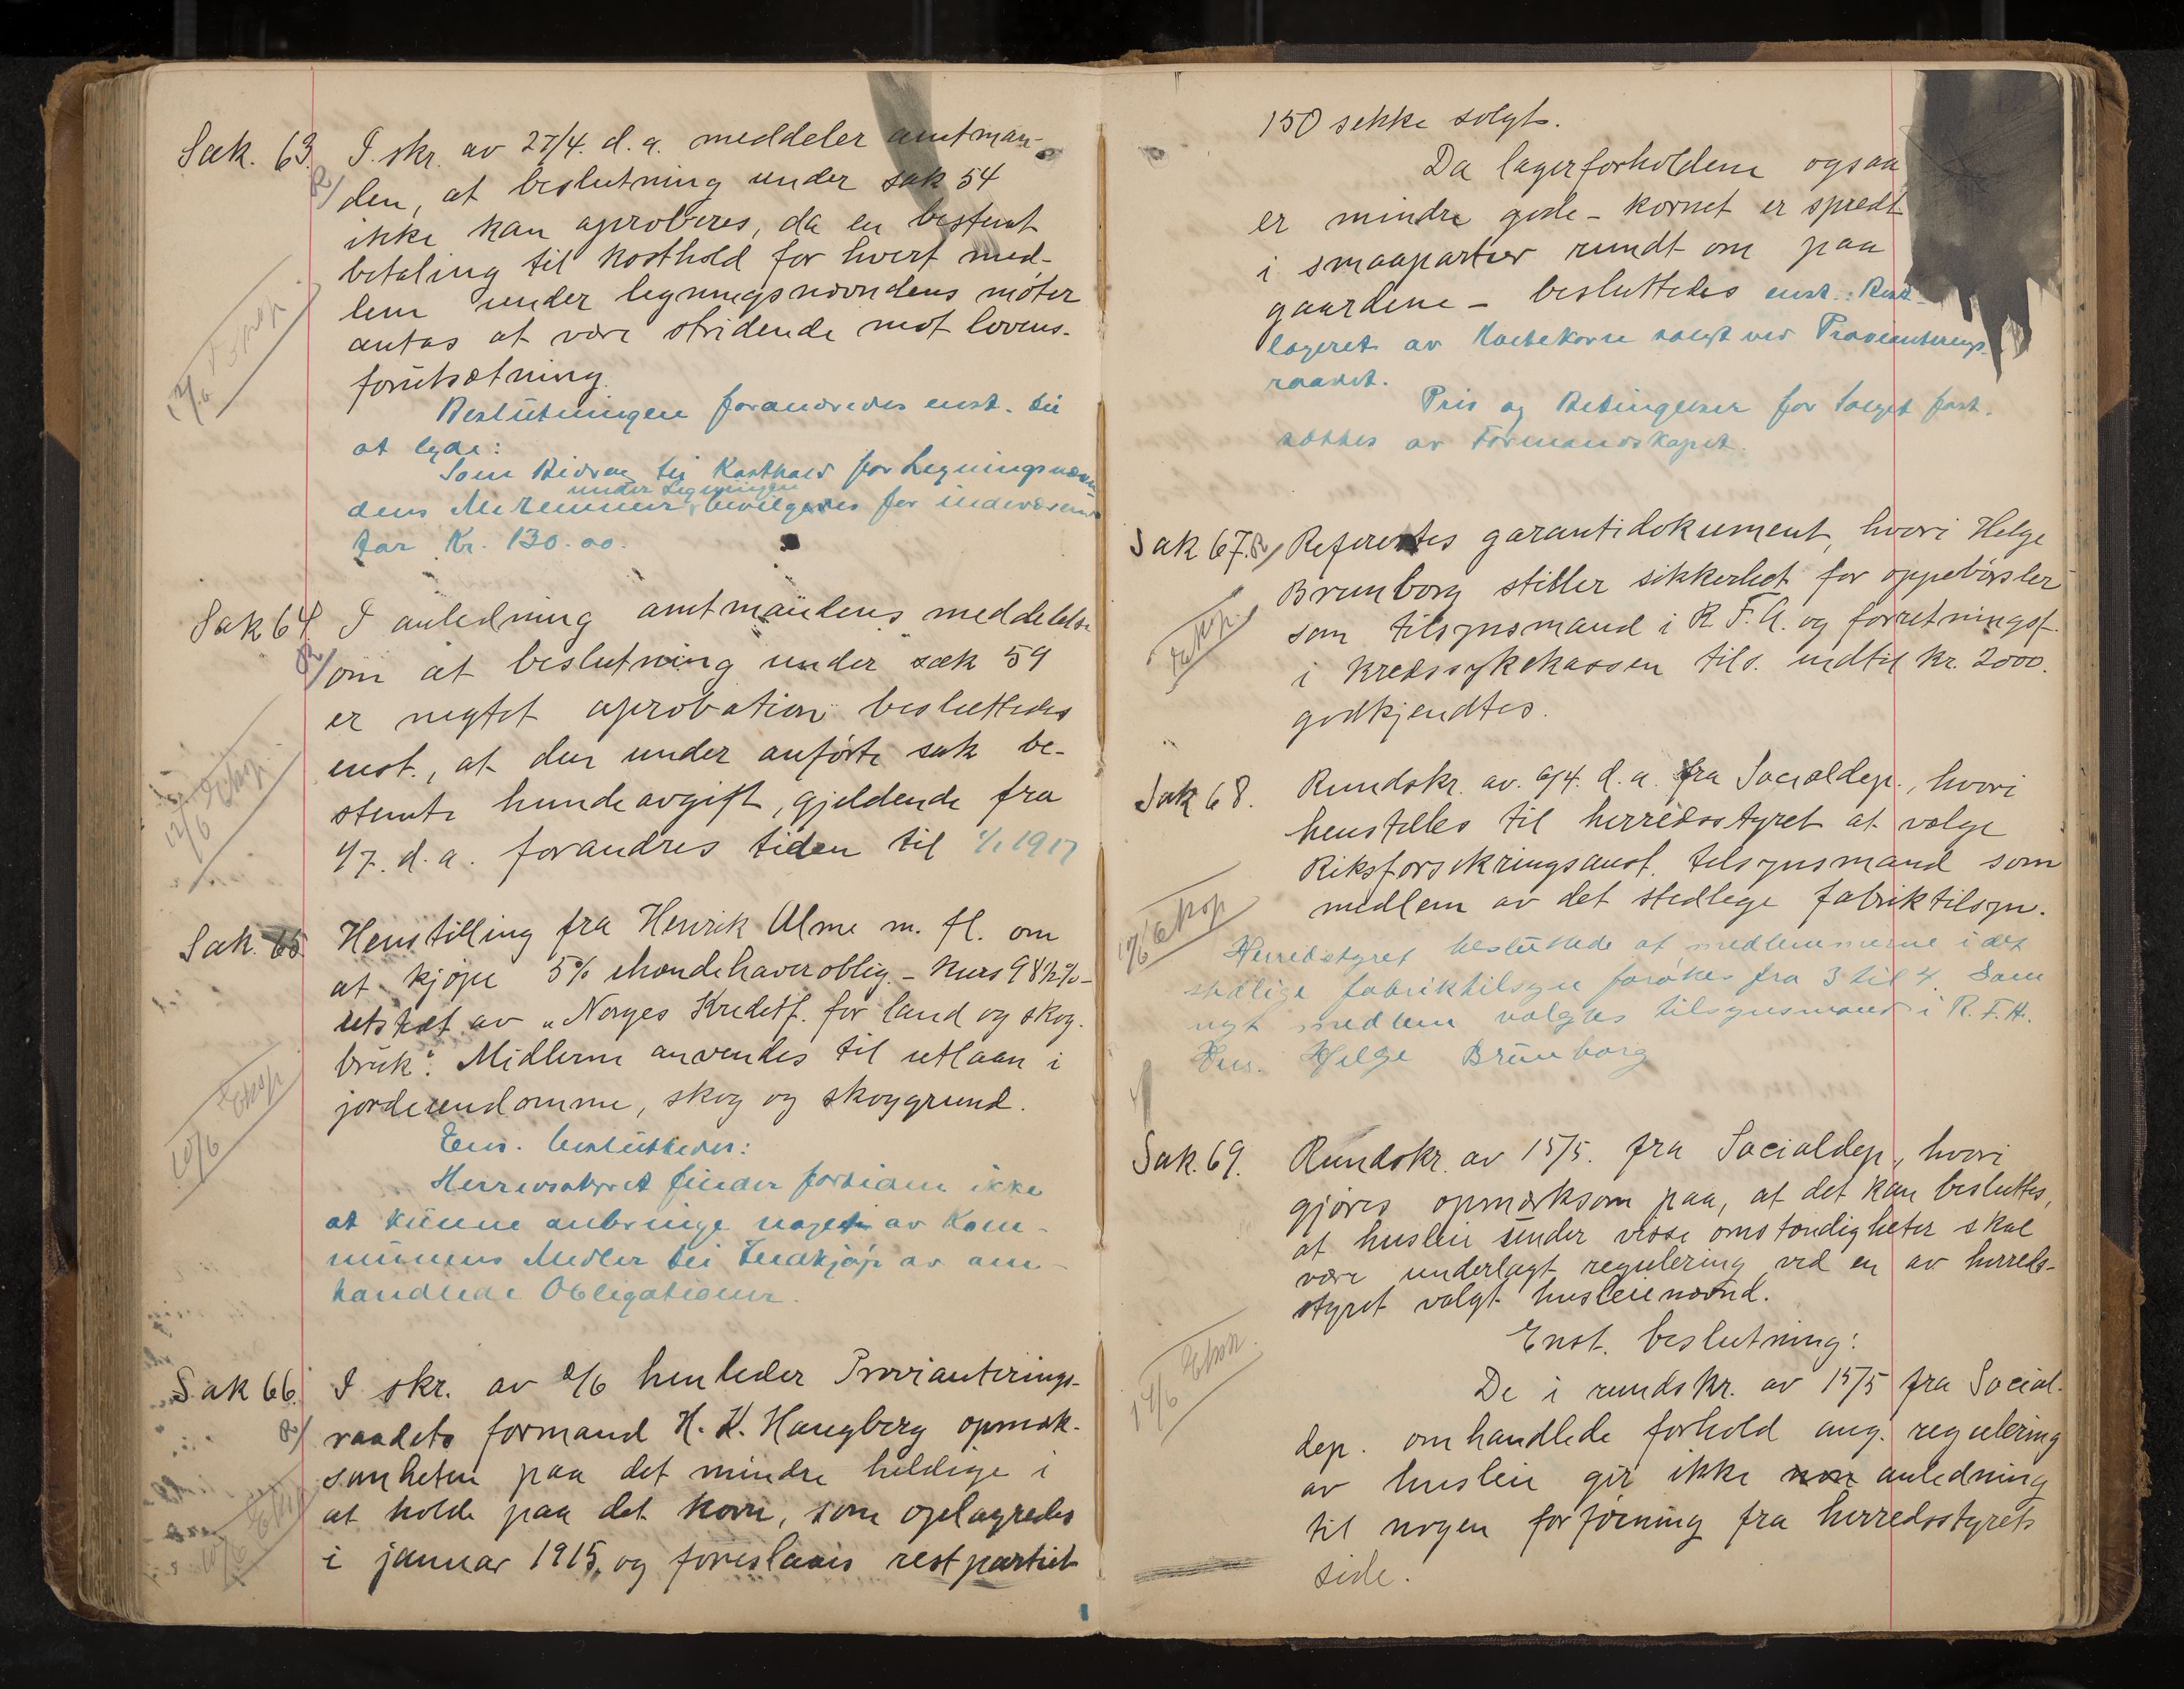 Sak. 63. I. skr. av 27/4. d. a. meddeler amtman-
den, at beslutning under sak 54
ikke kan aproberes, da en bestemt
betaling til kosthold for hvert med-
lem under ligningsnævndens møter
antas at være stridende mot lovens.
forutsætning.
Beslutningen forandredes enst. til
at lyde:
Som Bidrag til Kosthold for Ligningsnævn-
under Ligningen
dens Medlemmer bevilgedes for indeværende
aar Kr. 130.00.
Sak 64. I anledning amtmandens meddelelse
om at beslutning under sak 59
er negtet aprobation besluttedes
enst., at den under anførte sak be-
stemte hundeavgift, gjeldende fra
1/7. d. a. forandres tiden til 1/1 1917
Sak. 65. Henstilling fra Henrik Alme m. fl. om
at kjøpe 5% ihændehaveroblig. - kurs 98½%-
utstedt av "Norges Kreditf. for land og skog.
bruk". Midlerne anvendes til utlaan i
jordeiendomme, skog og skoggrund.
Ens. besluttedes:
Herredsstyret finder fortiden ikke
at kunne anbringe noget av Kom-
munens Midler til Indkjøp av om-
handlede Obligationer.
Sak 66. I skr. av 2/6 henleder Provianterings-
raadets formand H. K. Haugberg opmerk.
somheten paa det mindre heldige i
at holde paa det korn, som oplagredes
i januar 1915, og foreslaaes restpartiet
150 sekke solgt.
Da lagerforholdene ogsaa
er mindre gode - kornet er spredt
i smaapartier rundt om paa
gaardene - besluttedes enst. : Rest-
lageret av solgt ved Provianterings-
raadet.
Pris og Betingelser for Salget fast.
sættes av Formandskapet.
Sak 67. Referertes garantidokument, hvori Helge
Brunborg stiller sikkerhet for oppebørsler
som tilsynsmand i R. F. A. og forretningsf.
i kredssykekassen tils. indtil kr. 2000.
godkjendtes.
Sak 68. Rundskr. av 9/4. d. a. fra Socialdep., hvori
henstilles til herredsstyret at vælge
Riksforsikringsanst. tilsynsmand som
medlem av det stedlige fabriktilsyn.
Herredstyret besluttede at medlemmerne i det
stedlige fabriktilsyn forøkes fra 3 til 4. Som
nyt medlem valgtes tilsynsmand i R. F. A.
Hr. Helge Brunborg
Sak. 69. Rundskr. av 15/5. fra Socialdep., hvori
gjøres opmerksom paa, at det kan besluttes,
at husleie under visse omstændigheter skal
være underlagt regulering ved en av herreds-
styret valgt husleienævnd.
Enst. beslutning:
De i rundskr. av 15/5 fra Social-
dep. omhandlede forhold ang. regulering
av husleie gir ikke anledning
til nogen forføining fra herredsstyrets
side.